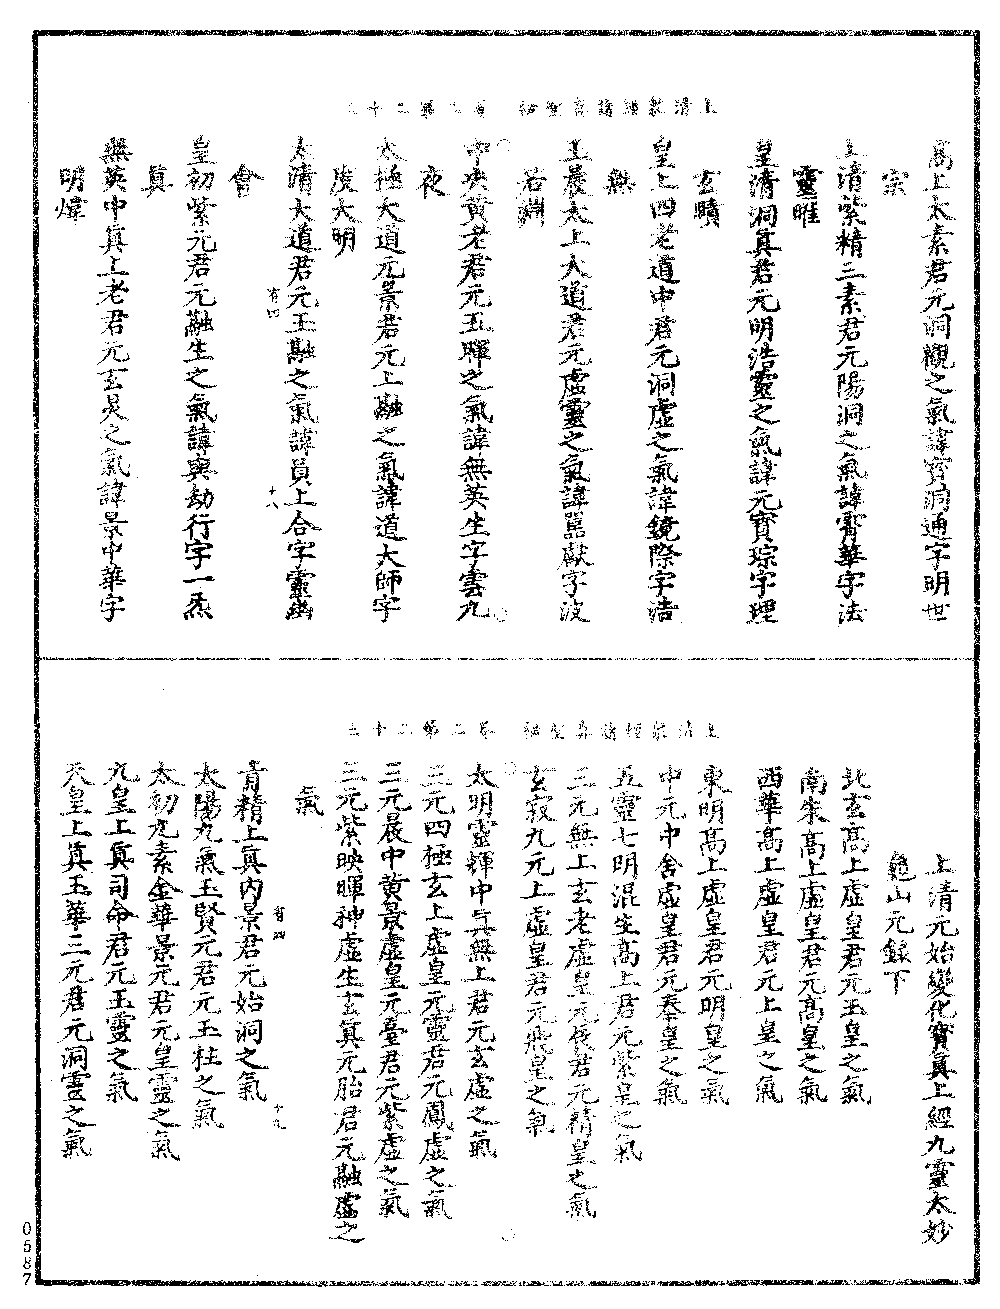 高上太素君元洞觀之氣諱寶洞通字明世
宗
上清紫精三素君元陽洞之氣諱霄華字法
靈睢
皇清洞真君元明浩靈之氣諱元寶琮字理
玄賾
皇上四老道中君元洞虛之氣諱鏡際字浩
無
玉晨太上大道君元虛靈之氣諱罵獻字波
若淵
中央黃老君元五暉之氣諱無英生字雲九
夜
太極大道元景君元上融之氣諱道大師字
度大明
太清大道君元玉融之氣諱員上合字靈幽
會
皇初紫元君元融生之氣諱與劫行字一炁
真
無英中真上老君元玄炅之氣諱景中華字
明煒
上清元始變化寶真上經九靈太妙
龜山元錄下
北玄高上虛皇君元玉皇之氣
南朱高上虛皇君元高皇之氣
西華高上虛皇君元上皇之氣
東明高上虛皇君元明皇之氣
中元中舍虛皇君元奉皇之氣
五靈七明混生高上君元紫皇之氣
三元無上玄老虛皇元長君元精皇之氣
玄寂九元上虛皇君元飛皇之氣
太明靈輝中真無上君元玄虛之氣
三元四極玄上虛皇元靈君元鳳虛之氣
三元晨中黃景虛皇元臺君元紫虛之氣
三元紫映暉神虛生玄真元胎君元融虛之
氣
青精上真內景君元始洞之氣
太陽九氣玉賢元君元玉柱之氣
太初九素金華景元君元皇靈之氣
九皇上真司命君元玉靈之氣
天皇上真玉華三元君元洞靈之氣
0587